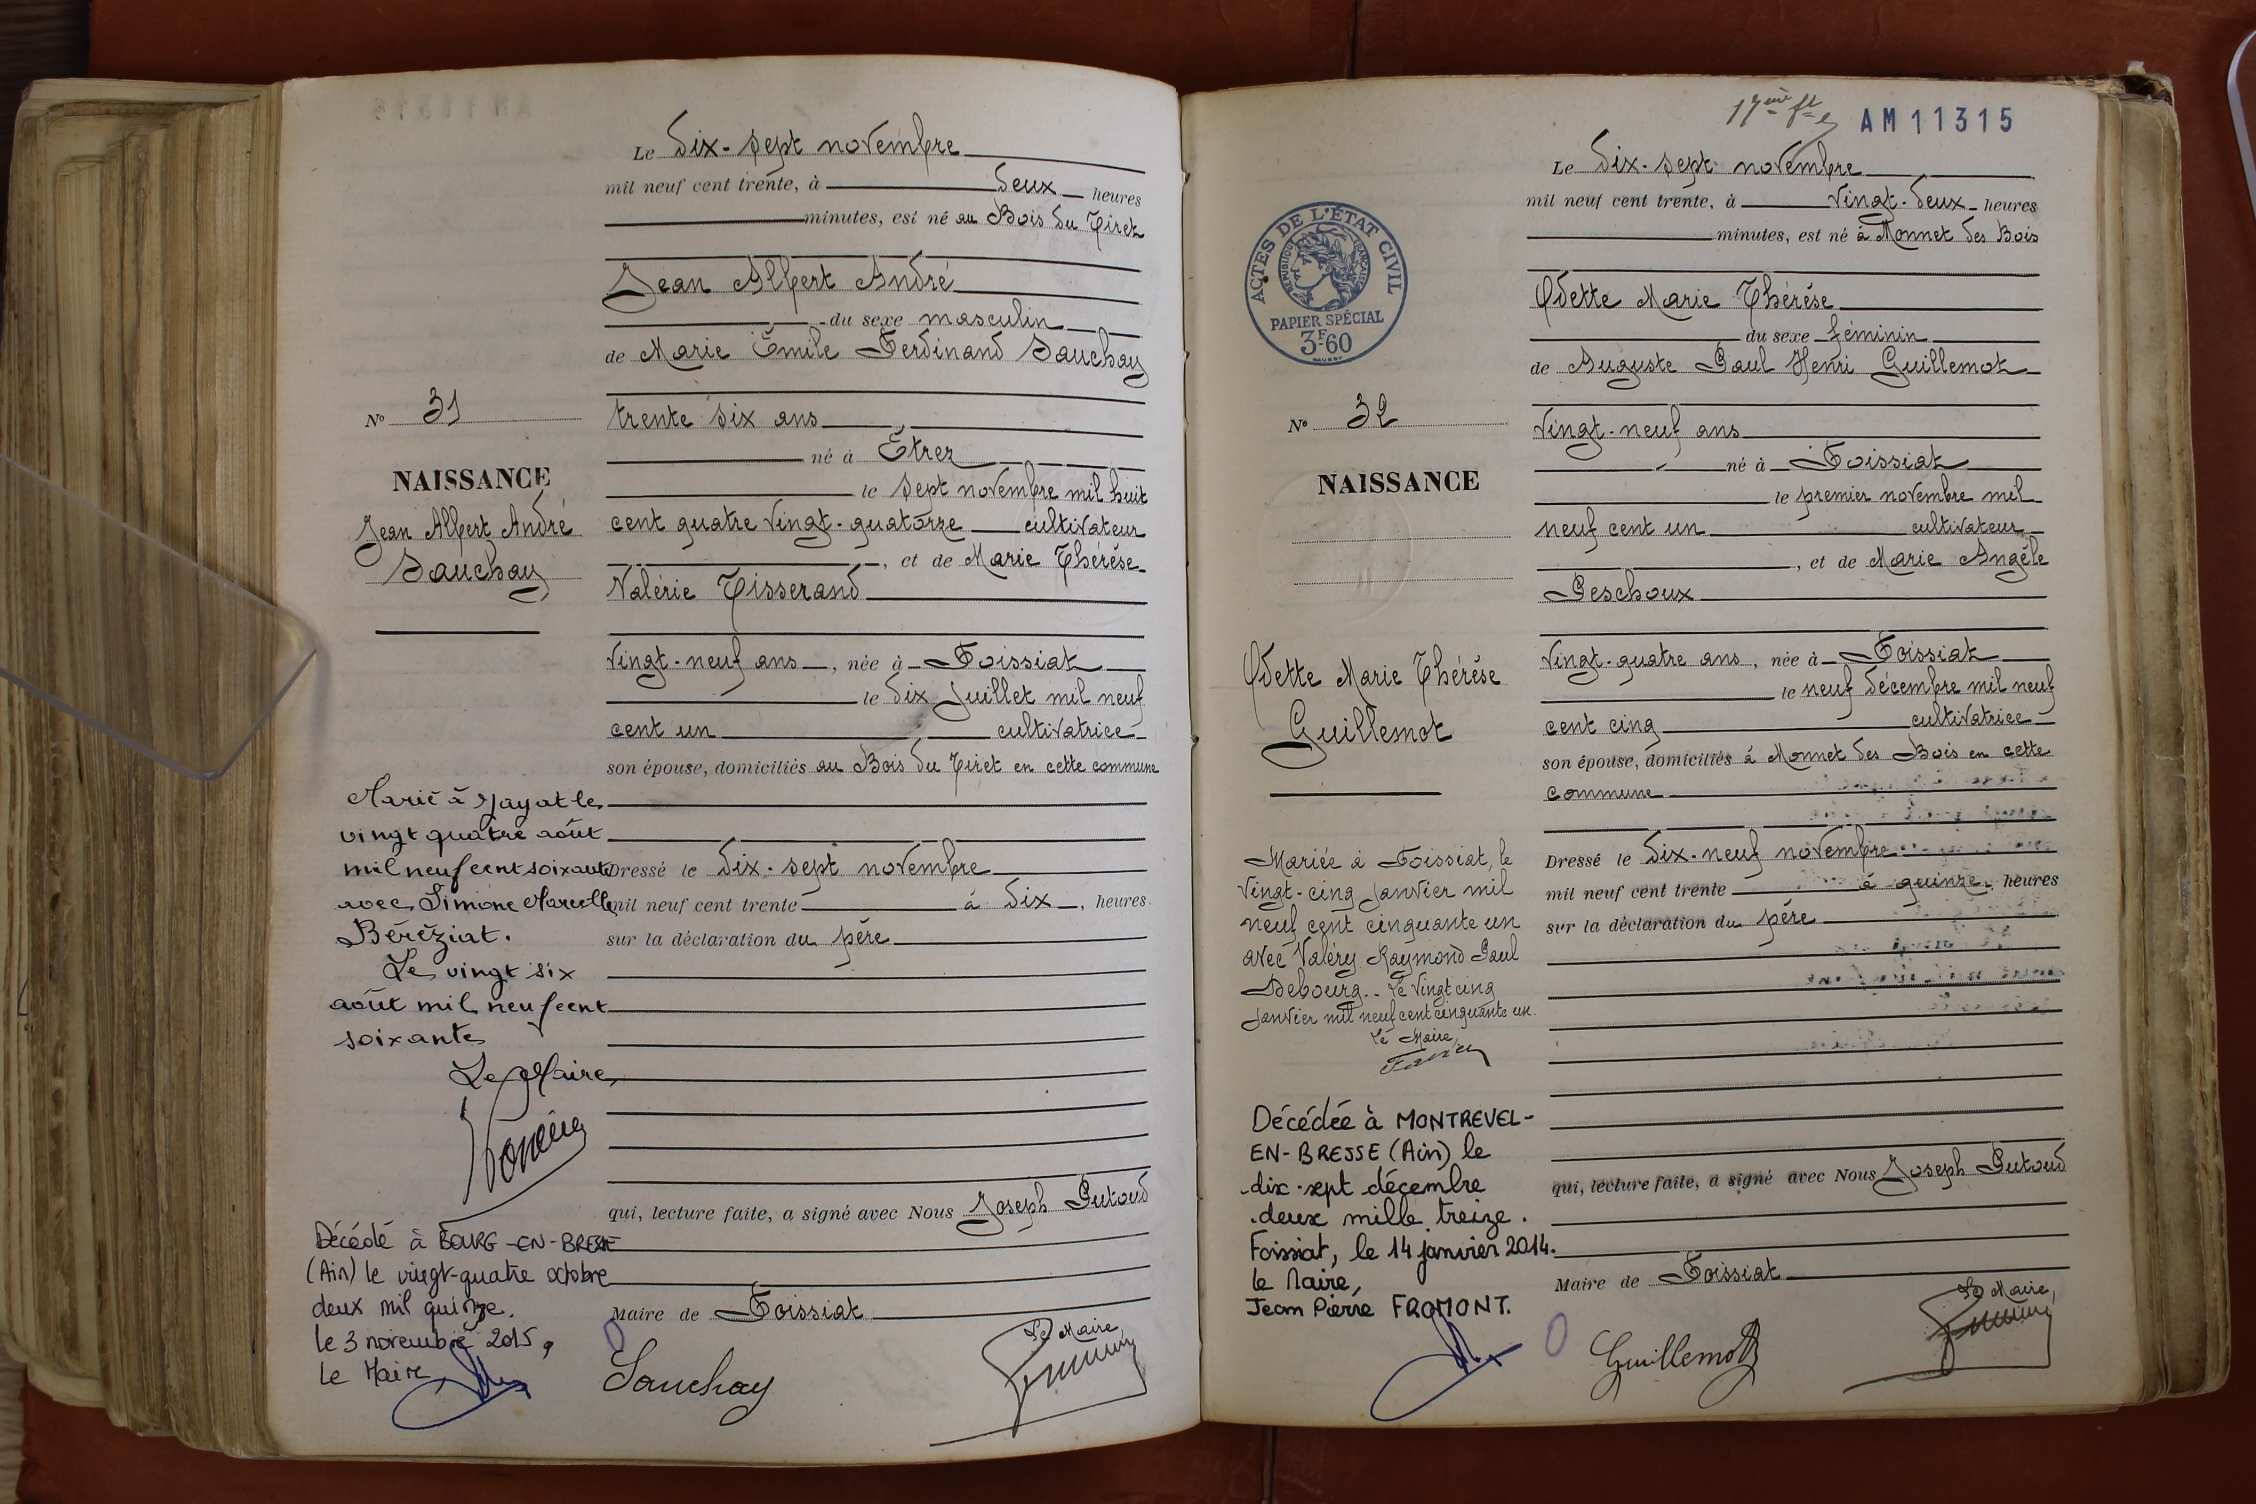 Le Dix-sept novembre
mil neuf cent trente, à Deux heures
minutes, est né au Bois du Tiret
Jean Albert André
du sexe masculin
de Marie Émile Ferdinand Sauchay
Nº 31
trente six ans
né à Étrez
NAISSANCE
le sept novembre mil huit
Jean Albert André
cent quatre vingt-quatorze cultivateur
Sauchay
, et de Marie Thérèse
Valérie Tisserand
vingt-neuf ans, née à Foissiat
le dix Juillet mil neuf
cent un cultivatrice
son épouse, domiciliés au Bois du Tiret en cette commune
Marié à Jayat le
vingt quatre août
mil neuf cent soixante
avec Simone Marcelle
Béréziat.
Le vingt six
août mil neuf cent
soixante
Le Maire,
Dressé le dix-sept novembre
mil neuf cent trente à dix, heures
sur la déclaration du père
qui, lecture faite, a signé avec Nous Joseph Putoud
Décédé à BOURG-EN-BRESSE
(Ain) le vingt-quatre octobre
deux mil quinze.
le 3 novembre 2015,
Le Maire
Maire de Foissiat
Le Maire,
Sauchay
17ème ft
AM11315
Le Dix-sept novembre
mil neuf cent trente, à Vingt-deux heures
minutes, est né à Monnet des Bois
ACTES DE L'ÉTAT CIVIL
RÉPUBLIQUE FRANÇAISE
PAPIER SPÉCIAL
3F60
Odette Marie Thérèse
du sexe féminin
de Auguste Paul Henri Guillemot
Nº 32
vingt-neuf ans
né à Foissiat
NAISSANCE
le premier novembre mil
neuf cent un cultivateur
, et de Marie Angèle
Peschoux
Odette Marie Thérèse
Guillemot
vingt-quatre ans, née à Foissiat
le neuf décembre mil neuf
cent cinq cultivatrice
son épouse, domiciliés à Monnet des Bois en cette
commune
Mariée à Foissiat, le
vingt-cinq janvier mil
neuf cent cinquante un
avec Valéry Raymond Paul
Debourg.. Le vingt cinq
janvier mil neuf cent cinquante un.
Le Maire,
Dressé le dix-neuf novembre
mil neuf cent trente à quinze heures
sur la déclaration du père
Décédée à MONTREVEL-
EN-BRESSE (Ain) le
dix-sept décembre
deux mille treize.
Foissiat, le 14 janvier 2014.
Le Maire,
Jean Pierre FROMONT.
qui, lecture faite, a signé avec Nous Joseph Putoud
Maire de Foissiat
Le Maire,
Guillemot